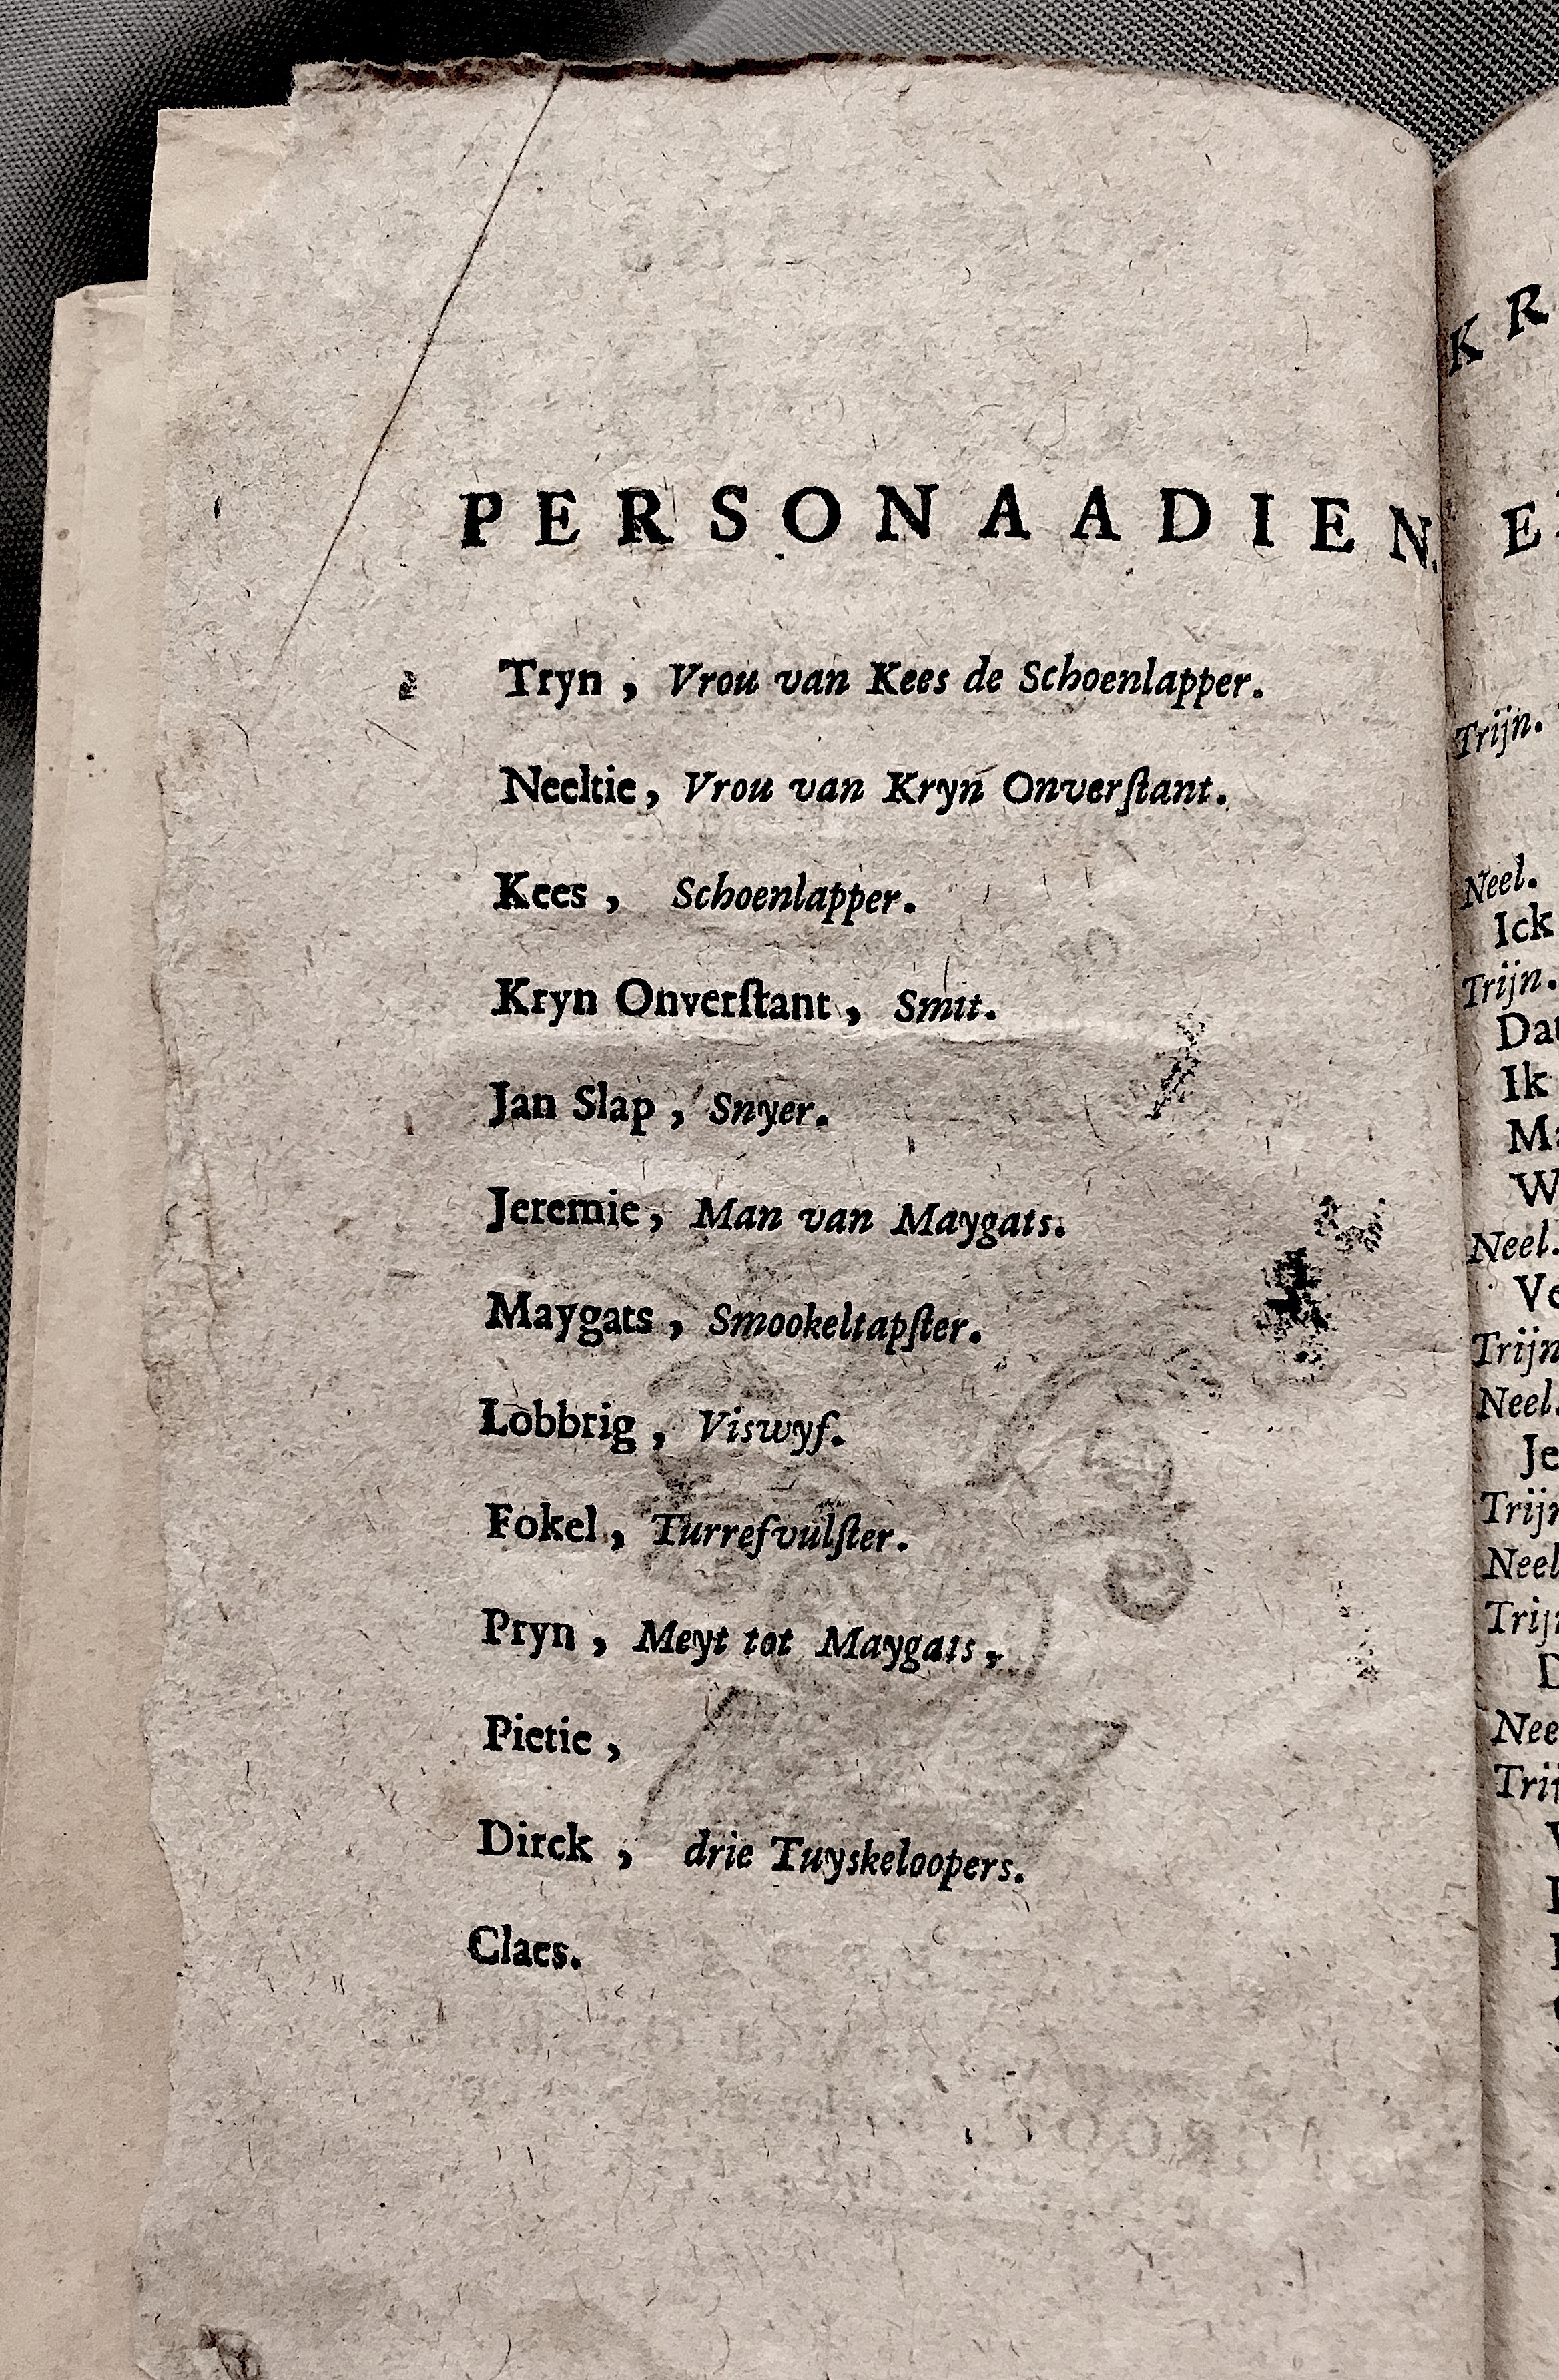 PERSONAADIEN.
Tryn, Vrou van Kees de Schoenlapper.
Neeltie, Vrou van Kryn Onverſtant.
Kees, Schoenlapper.
Kryn Onverſtant, Smit.
Jan Slap, Snyer.
Jeremie, Man van Maygats.
Maygats, Smookeltapſter.
Lobbrig, Viswyf.
Fokel, Turrefvulſter.
Pryn, Meyt tot Maygats,
Pietie,
Dirck, drie Tuyskeloopers.
Claes.
Trijn.
Neel.
Ick
Trijn.
Ik
Neel.
Neel.